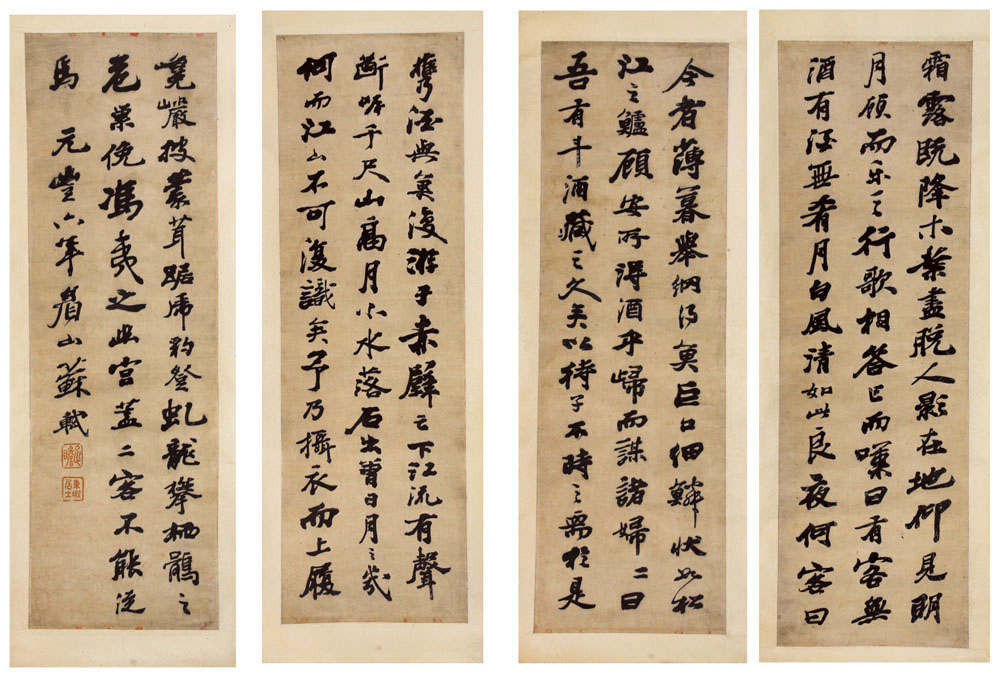 霜露既降木葉盡脫人影在地仰見明
月顧而樂之行歌相答已而嘆曰有客無
酒有酒無肴月白風清如此良夜何客曰
今者薄暮舉網得魚巨口細鱗狀如松
江之鱸顧安所得酒乎歸而謀諸婦二曰
吾有斗酒藏之久矣以待子不時之需於是
攜酒與魚復游于赤壁之下江流有聲
斷岸千尺山高月小水落石出曾日月之幾
何而江山不可復識矣予乃攝衣而上履
巉巖披蒙茸踞虎豹登虬龍攀栖鶻之
危巢俛馮夷之幽宮蓋二客不能從
焉 元豐六年眉山蘇軾
東坡居士